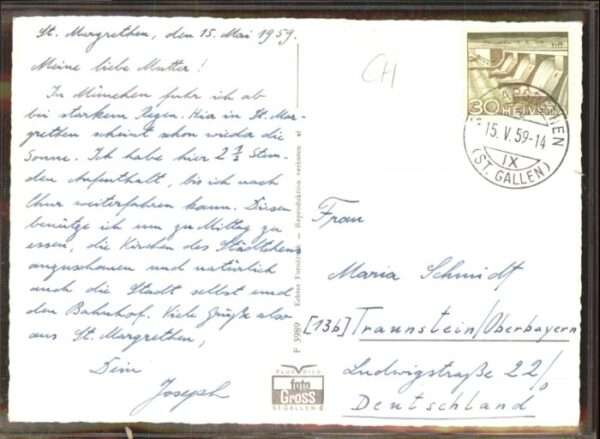 St. Margrethen, den 15. Mai 1959.
Meine liebe Mutter!
In München fuhr ich ab
bei starkem Regen. Hier in St. Mar-
grethen scheint schon wieder die
Sonne. Ich habe hier 2 1/2 Stun-
den Aufenthalt, bis ich nach
Chur weiterfahren kann. Diesen
benütze ich um zu Mittag zu
essen, die Kirchen des Städtchens
anzuschauen und natürlich
auch die Stadt selbst und
den Bahnhof. Viele Grüße also
aus St. Margrethen,
Dein
Joseph
P 3989
Reproduktion verboten
FLUGBILD
foto
Gross
ST. GALLEN
CH
30 HELVETIA
15. V. 59-14
IX
(ST. GALLEN)
Frau
Maria Schmidt
[13b] Traunstein/Oberbayern
Ludwigstraße 22/0
Deutschland